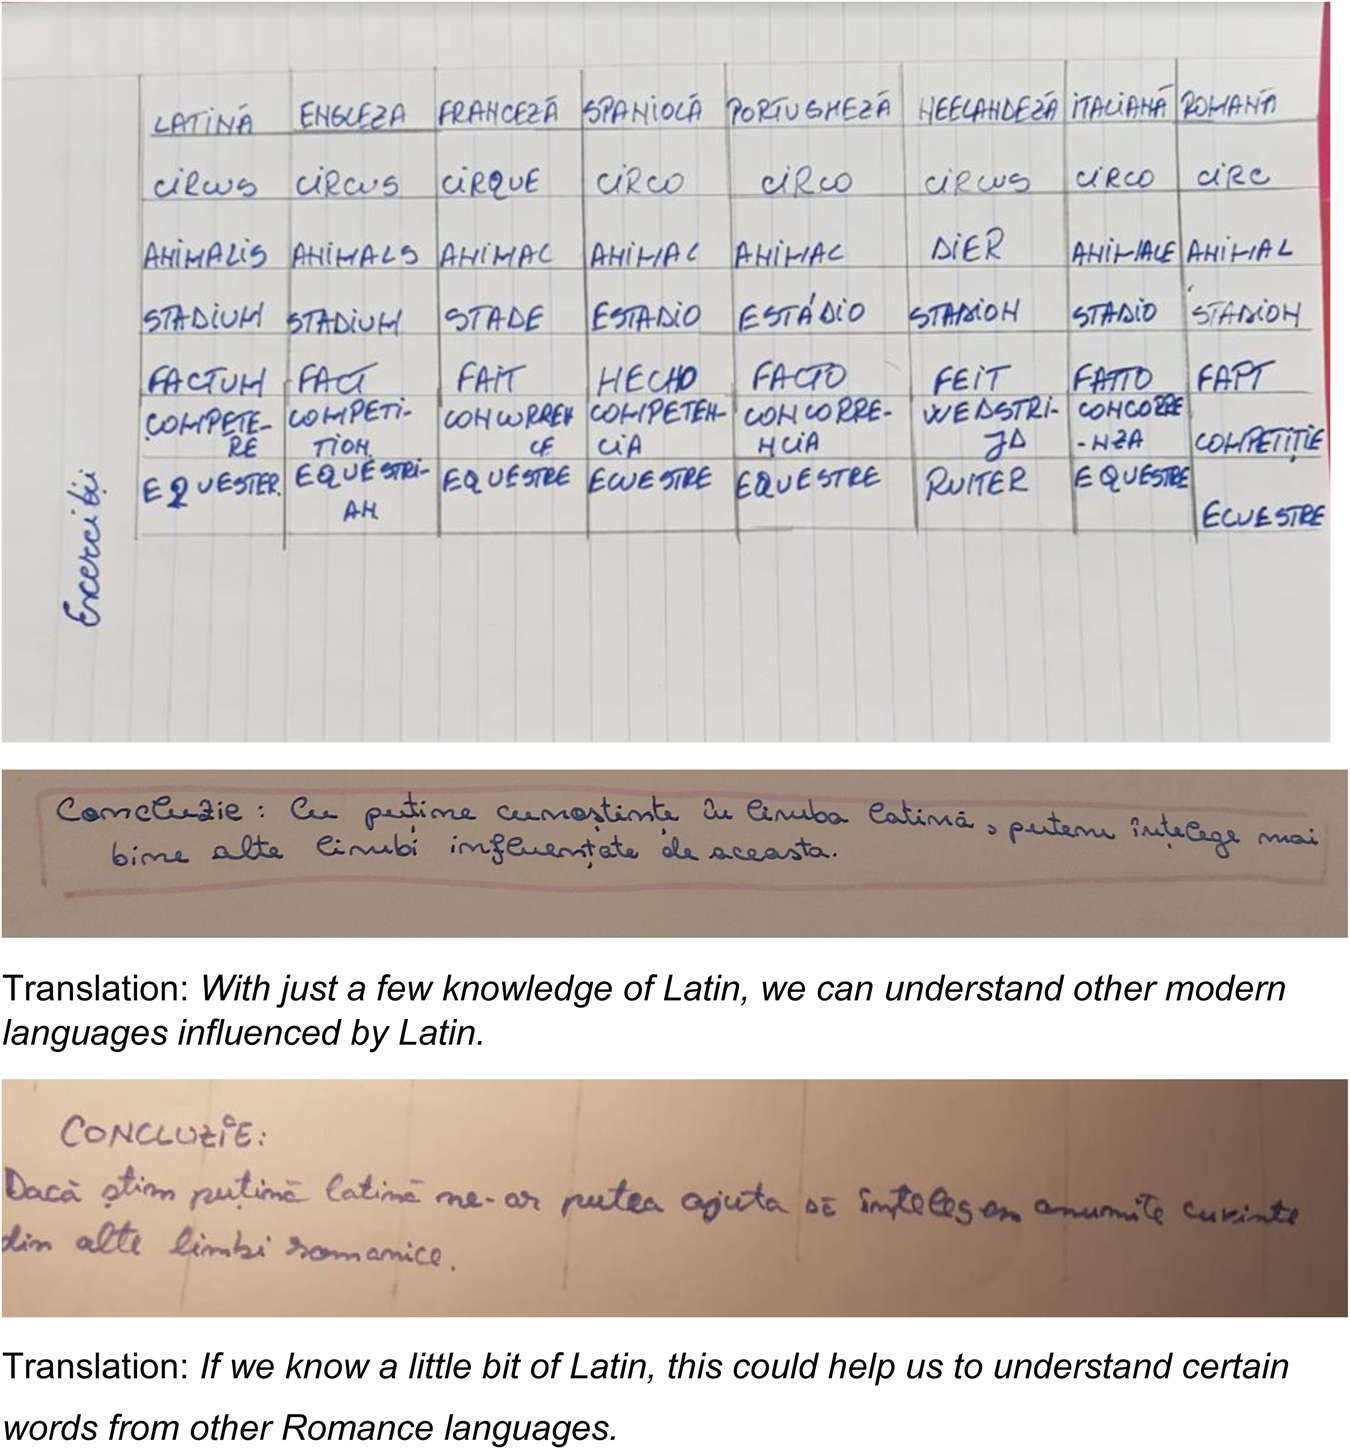 LATINĂ ENGLEZA FRANCEZĂ SPANIOLĂ PORTUGHEZĂ NEELANDEZĂ ITALIANĂ ROMANĂ
CIRCUS CIRCUS CIRQUE CIRCO CIRCO CIRCUS CIRCO CIRC
ANIMALIS ANIMALS ANIMAL ANIMAL ANIMAL DIER ANIMALE ANIMAL
STADIUM STADIUM STADE ESTADIO ESTÁDIO STADION STADIO STADION
FACTUM FACT FAIT HECHO FACTO FEIT FATTO FAPT
COMPETE- COMPETI- CONCURREN COMPETEN- CONCORRE- WEDSTRI- CONCORRE
RE TION CE CIA NCIA JD -NZA COMPETIȚIE
EQUESTER EQUESTRI- EQUESTRE ECUESTRE EQUESTRE RUITER EQUESTRE
AN ECUESTRE
Exerciții
Concluzie: Cu puține cunoștințe în limba latină, putem înțelege mai
bine alte limbi influențate de aceasta.
Translation: With just a few knowledge of Latin, we can understand other modern
languages influenced by Latin.
CONCLUZIE:
Dacă știm puțină latină ne-ar putea ajuta să înțelegem anumite cuvinte
din alte limbi romanice.
Translation: If we know a little bit of Latin, this could help us to understand certain
words from other Romance languages.